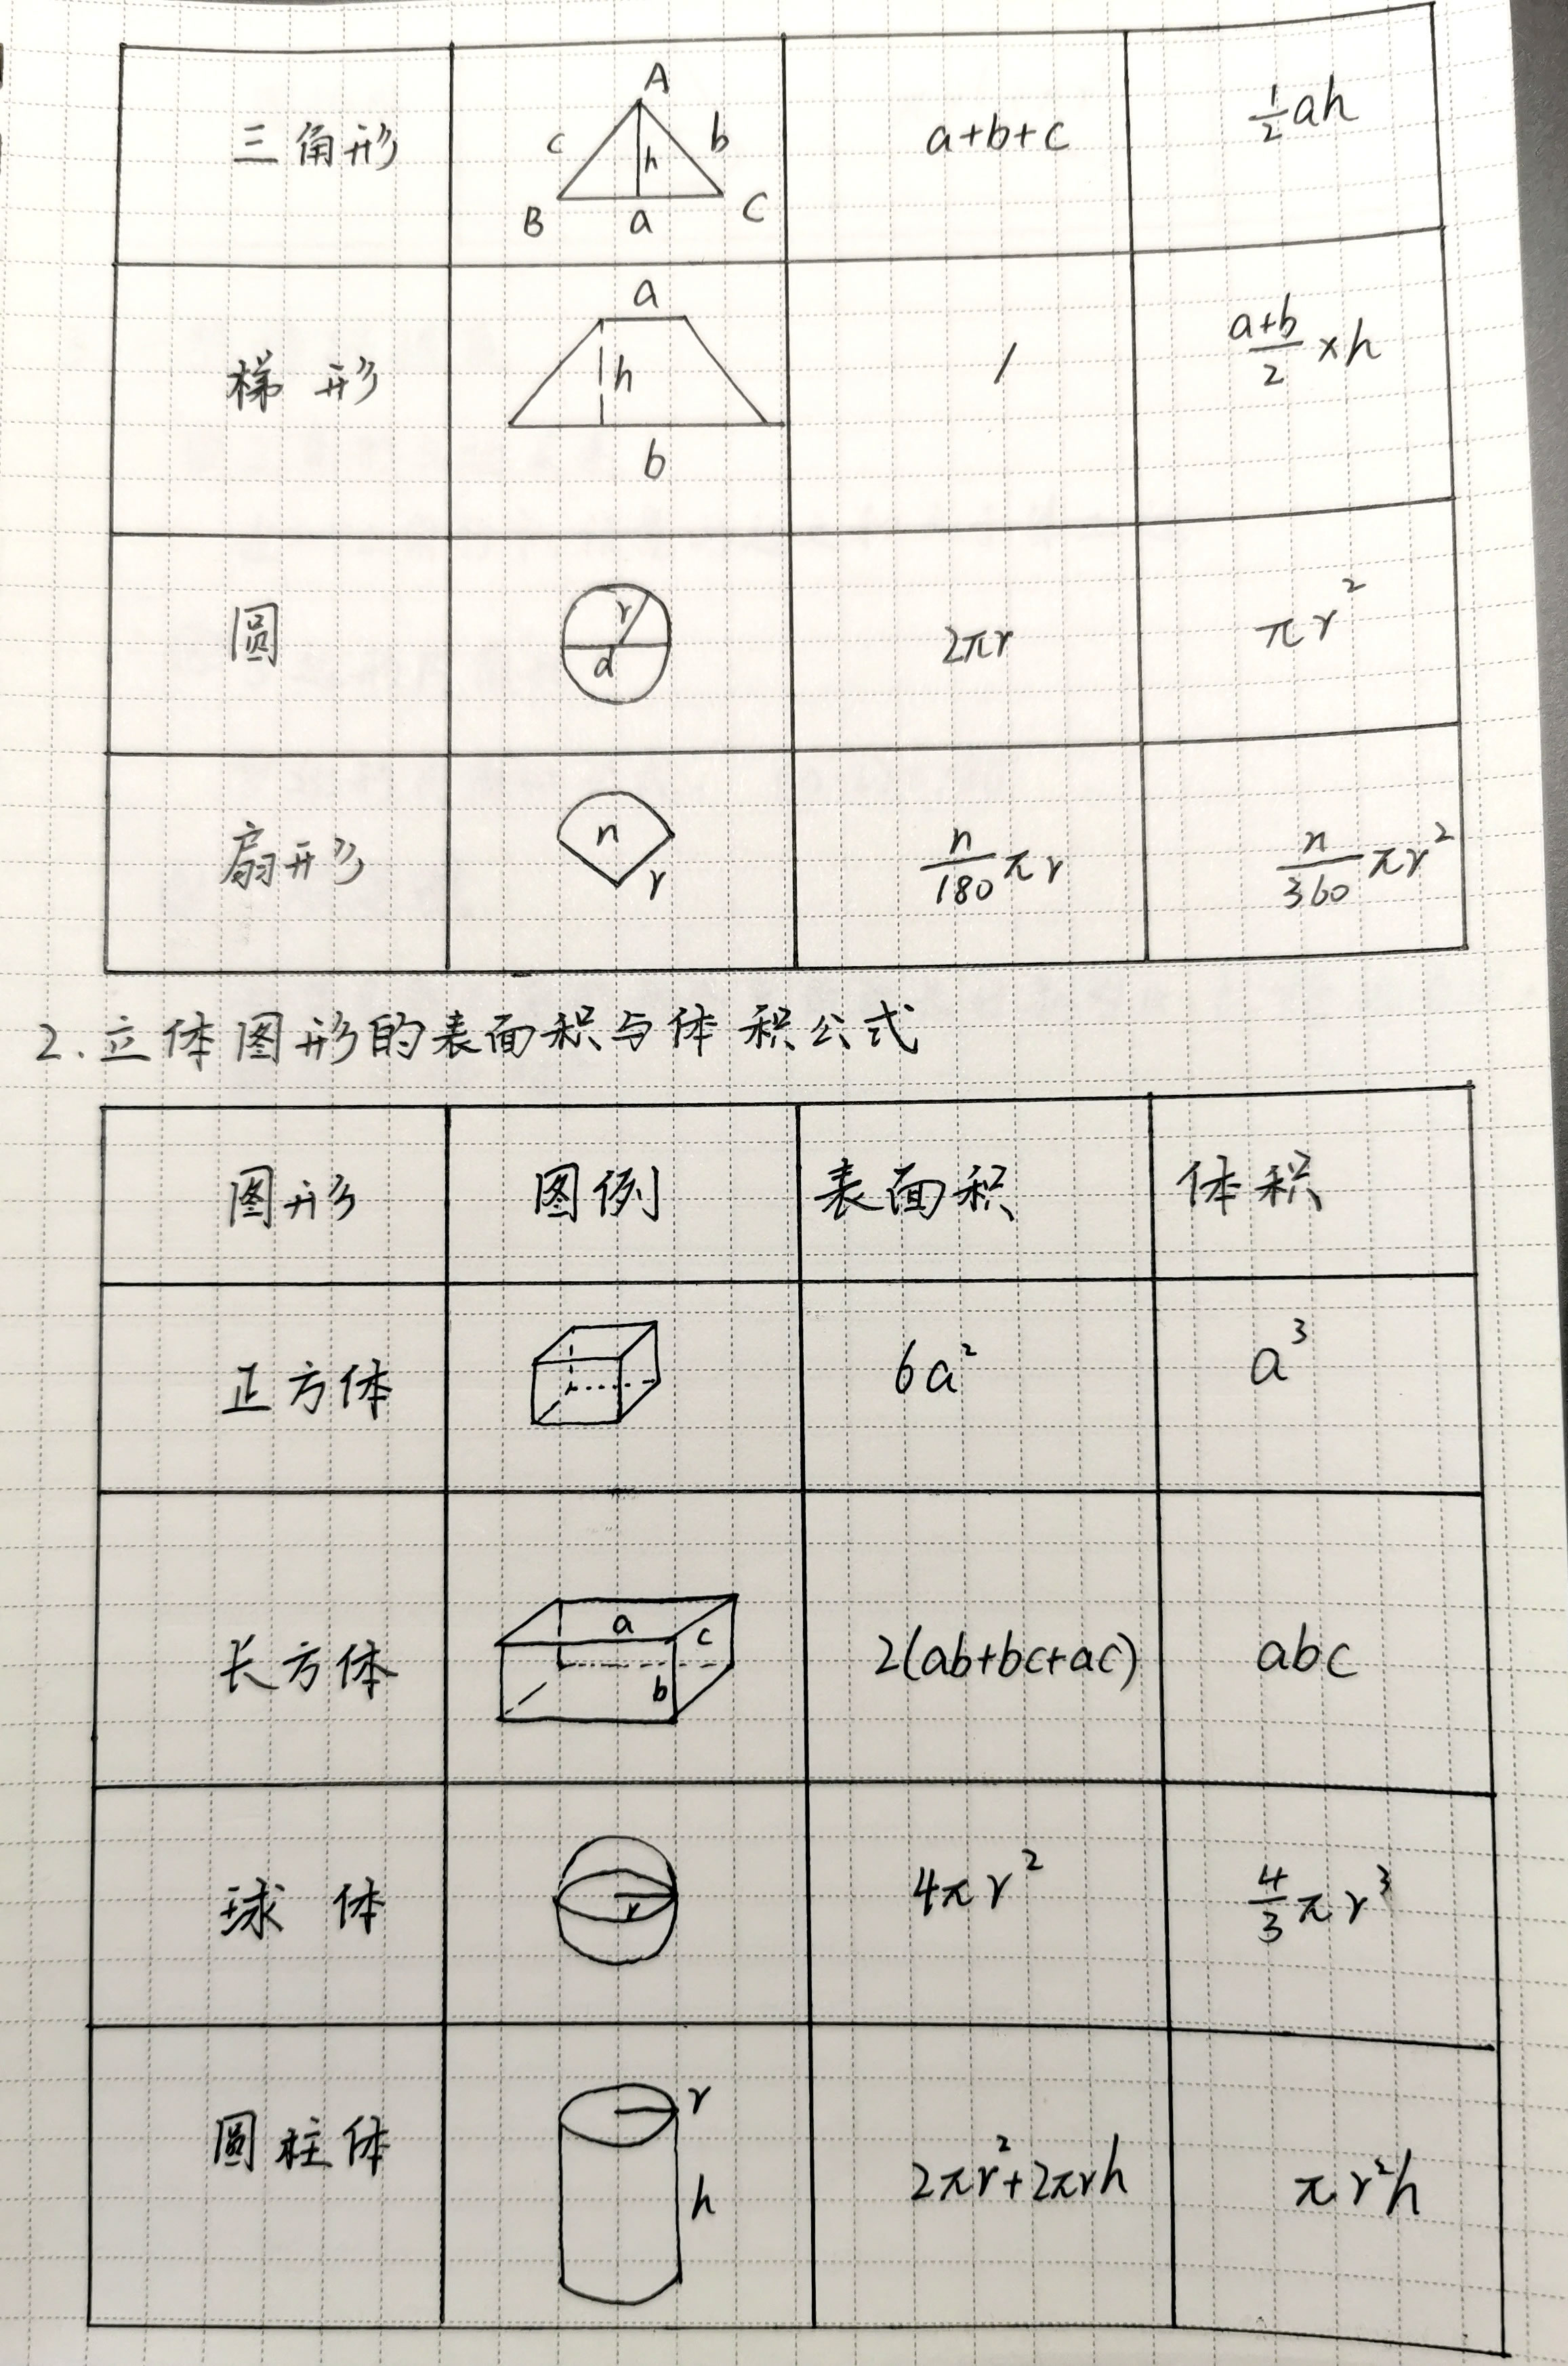 三角形 A c b h B a C a+b+c ½ah
梯形 a h b / (a+b)/2 ×h
圆 r d 2πr πr²
扇形 n r n/180 πr n/360 πr²
2.立体图形的表面积与体积公式
图形 图例 表面积 体积
正方体 6a² a³
长方体 a c b 2(ab+bc+ac) abc
球体 r 4πr² 4/3 πr³
圆柱体 r h 2πr²+2πrh πr²h